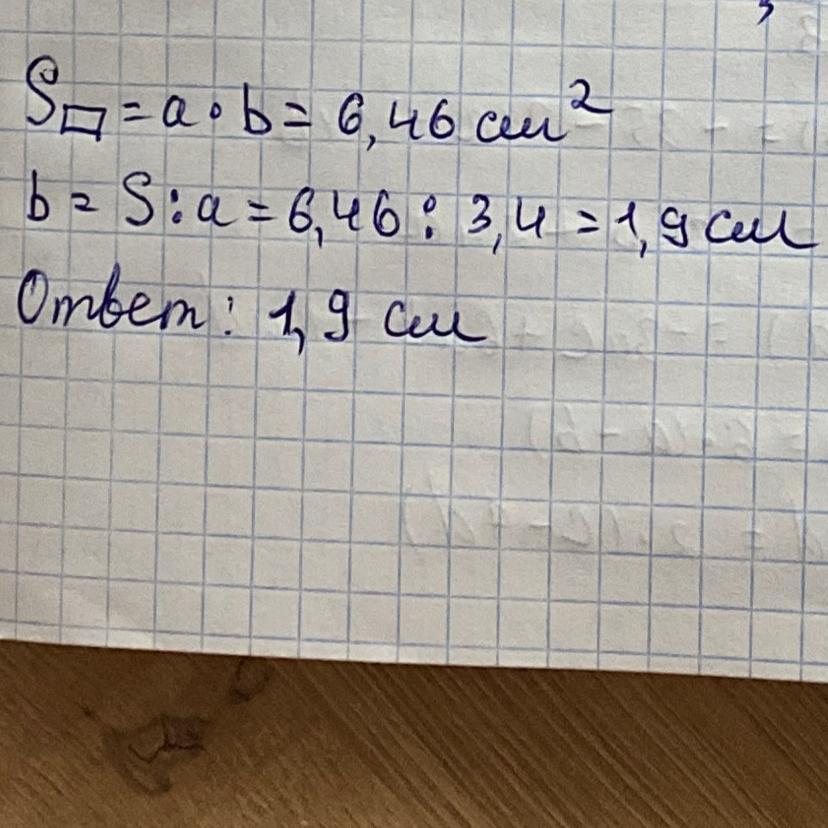 S▭ = a · b = 6,46 см²
b = S : a = 6,46 : 3,4 = 1,9 см
Ответ: 1,9 см